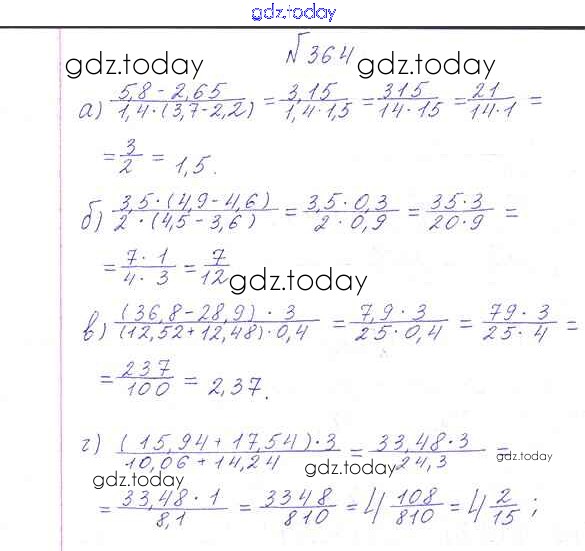 gdz.today
№364
gdz.today gdz.today
а) (5,8 - 2,65)/(1,4·(3,7-2,2)) = 3,15/(1,4·1,5) = 315/(14·15) = 21/(14·1) =
= 3/2 = 1,5.
б) (3,5·(4,9-4,6))/(2·(4,5-3,6)) = (3,5·0,3)/(2·0,9) = (35·3)/(20·9) =
= (7·1)/(4·3) = 7/12
gdz.today
в) ((36,8-28,9)·3)/((12,52+12,48)·0,4) = (7,9·3)/(25·0,4) = (79·3)/(25·4) =
= 237/100 = 2,37.
г) ((15,94+17,54)·3)/(10,06+14,24) = (33,48·3)/24,3 =
gdz.today gdz.today gdz.today
= (33,48·1)/8,1 = 3348/810 = 4 108/810 = 4 2/15;